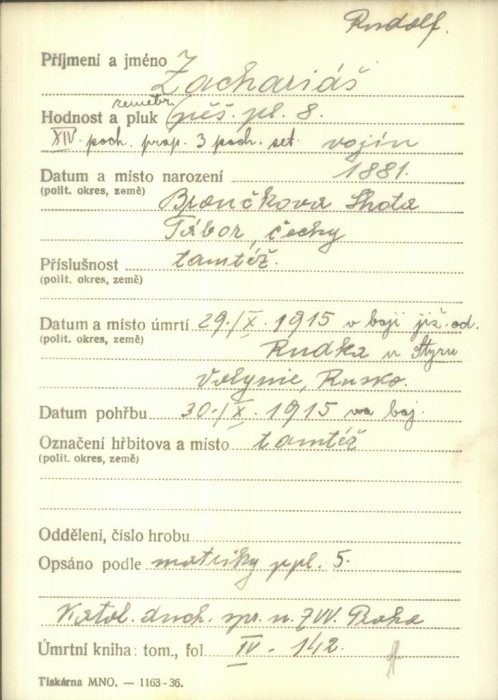 Rudolf.
Příjmení a jméno Zachariáš
zeměbr.
Hodnost a pluk pěš. pl. 8.
XIV. poch. prap. 3 poch. set. vojín
Datum a místo narození 1881.
(polit. okres, země) Brančkova Lhota
Tábor, Čechy
Příslušnost tamtéž.
(polit. okres, země)
Datum a místo úmrtí 29./X. 1915 v boji již. od.
(polit. okres, země) Rudka u Styru
Volynie, Rusko.
Datum pohřbu 30./X. 1915 na boj.
Označení hřbitova a místo tamtéž
(polit. okres, země)
Oddělení, číslo hrobu
Opsáno podle matriky ppl. 5.
Katol. duch. spr. u ZVV. Praha
Úmrtní kniha: tom., fol. IV - 142.
Tiskárna MNO. — 1163-36.